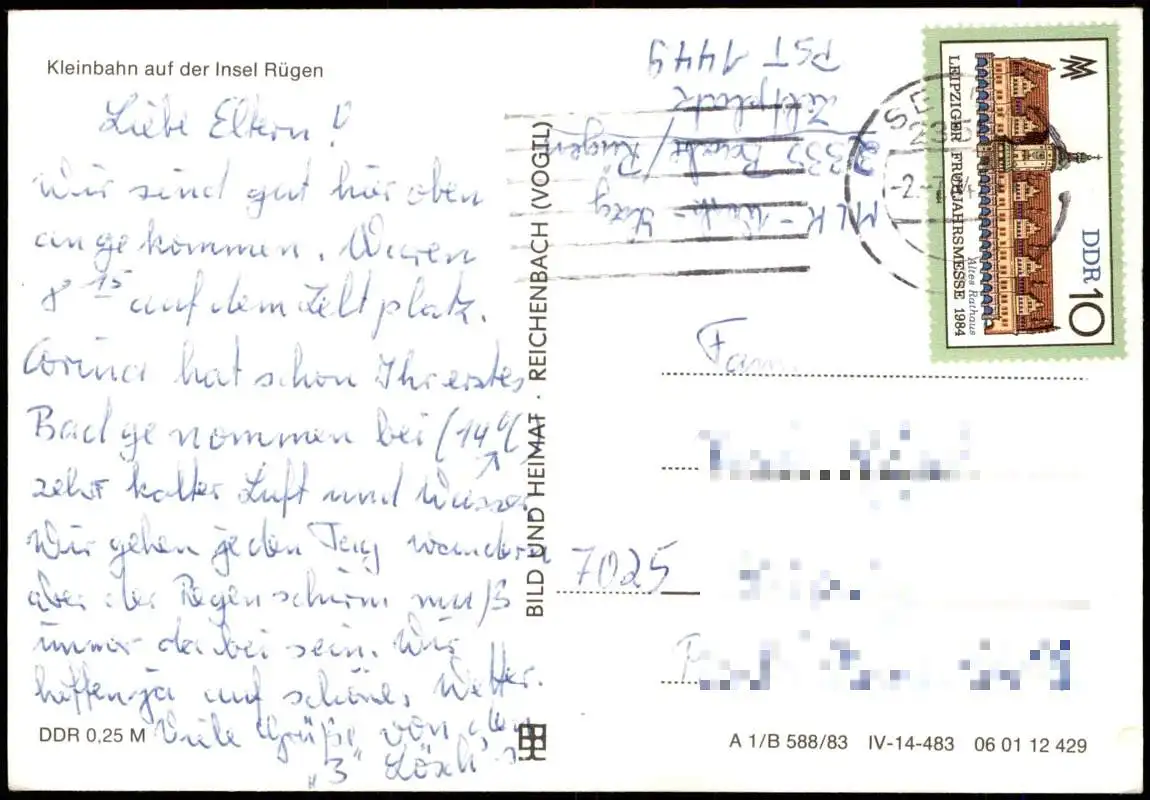 Kleinbahn auf der Insel Rügen
Liebe Eltern!
Wir sind gut hier oben
angekommen. Waren
8 15 auf dem Zeltplatz.
Corina hat schon Ihr erstes
Bad genommen bei (14°C
sehr kalter Luft und Wasser
Wir gehen jeden Tag wandern
aber der Regenschirm muß
immer dabei sein. Wir
hoffen ja auf schönes Wetter.
Viele Grüße von den
"3" Lösch's
DDR 0,25 M
BILD UND HEIMAT · REICHENBACH (VOGTL)
2335 / Rügen
Zeltplatz
PST 1449
SE
235
-2.-
MM
LEIPZIGER FRÜHJAHRSMESSE 1984
Altes Rathaus
DDR 10
Fam.
7025
A 1/B 588/83 IV-14-483 06 01 12 429